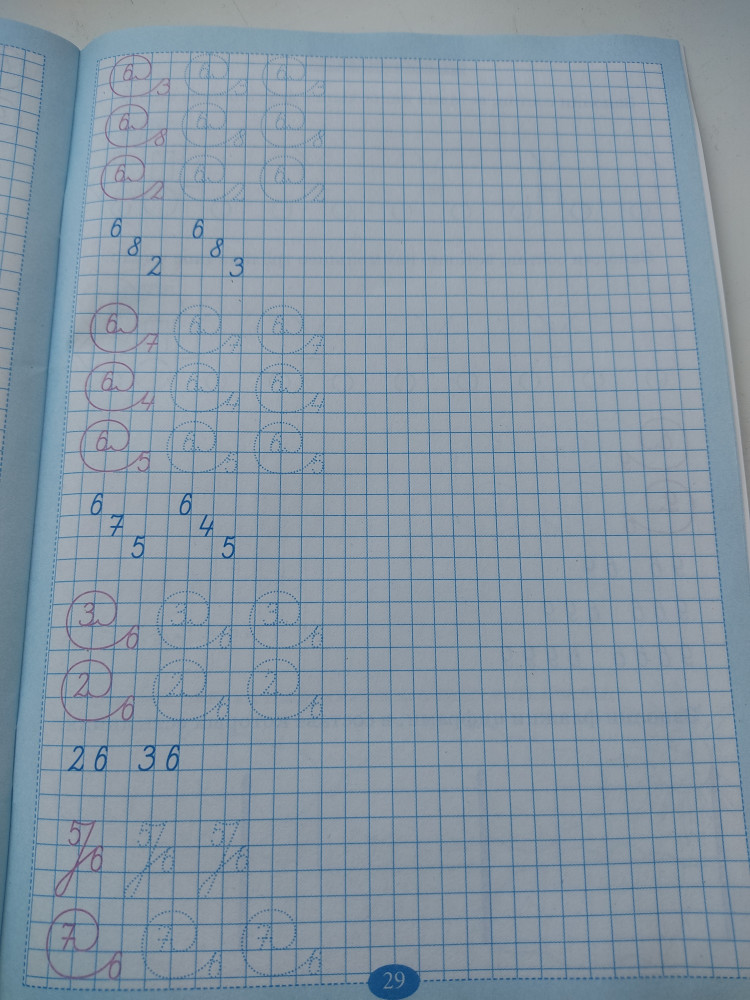 6 3 6 3 6 3
6 8 6 8 6 8
6 2 6 2 6 2
6 8 2 6 8 3
6 7 6 7 6 7
6 4 6 4 6 4
6 5 6 5 6 5
6 7 5 6 4 5
3 6 3 6 3 6
2 6 2 6 2 6
26 36
5 6 5 6 5 6
7 6 7 6 7 6
29